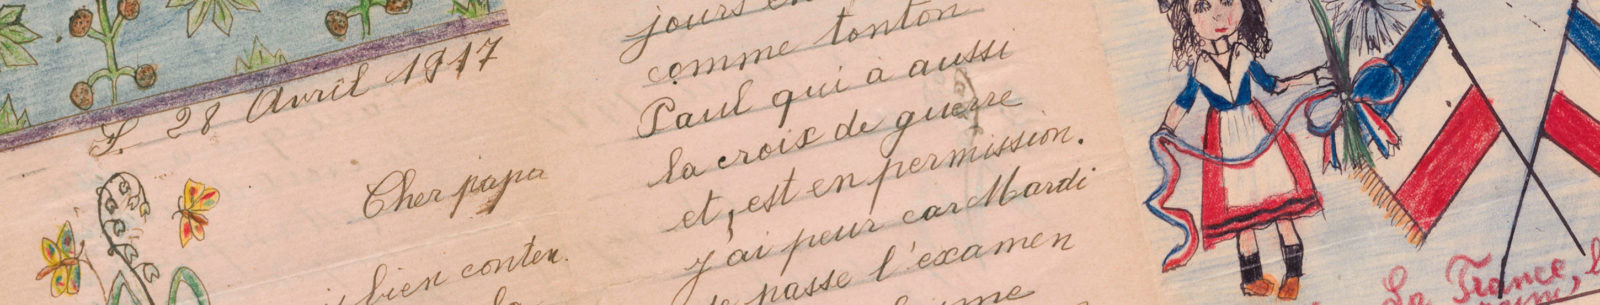 S. 28 Avril 1917
Cher papa
bien conten.
jours en
comme tonton
Paul qui a aussi
la croix de guerre
et, est en permission.
j'ai peur car Mardi
je passe l'examen
La France,